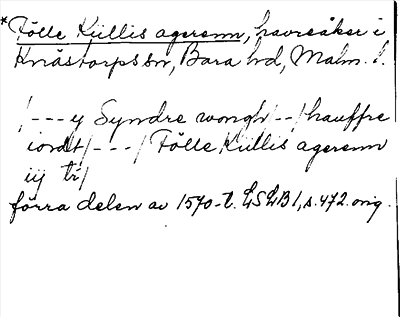 *Fölle Küllis agerenn, havreåker i
Knästorps sn, Bara hd, Malm. l.
/---y Syndre wongh/--/hauffre
iordt/---/ Fölle Küllis agerenn
iij tr/
förra delen av 1570-t. LSLB 1, s. 472. orig.